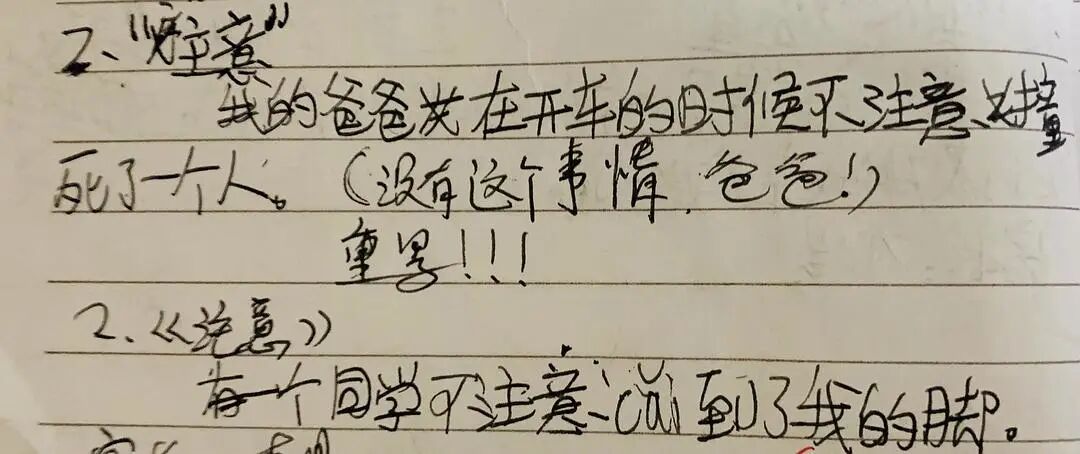 2、“注意”
我的爸爸在开车的时候不注意、撞
死了一个人。(没有这个事情,爸爸!)
重写!!!
2.《注意》
有一个同学不注意、cǎi到了我的脚。